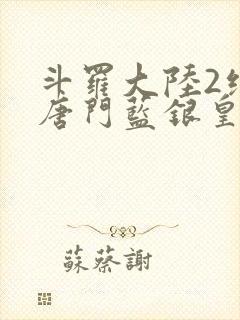 斗羅大陸2絕
唐門藍銀皇
蘇蔡謝